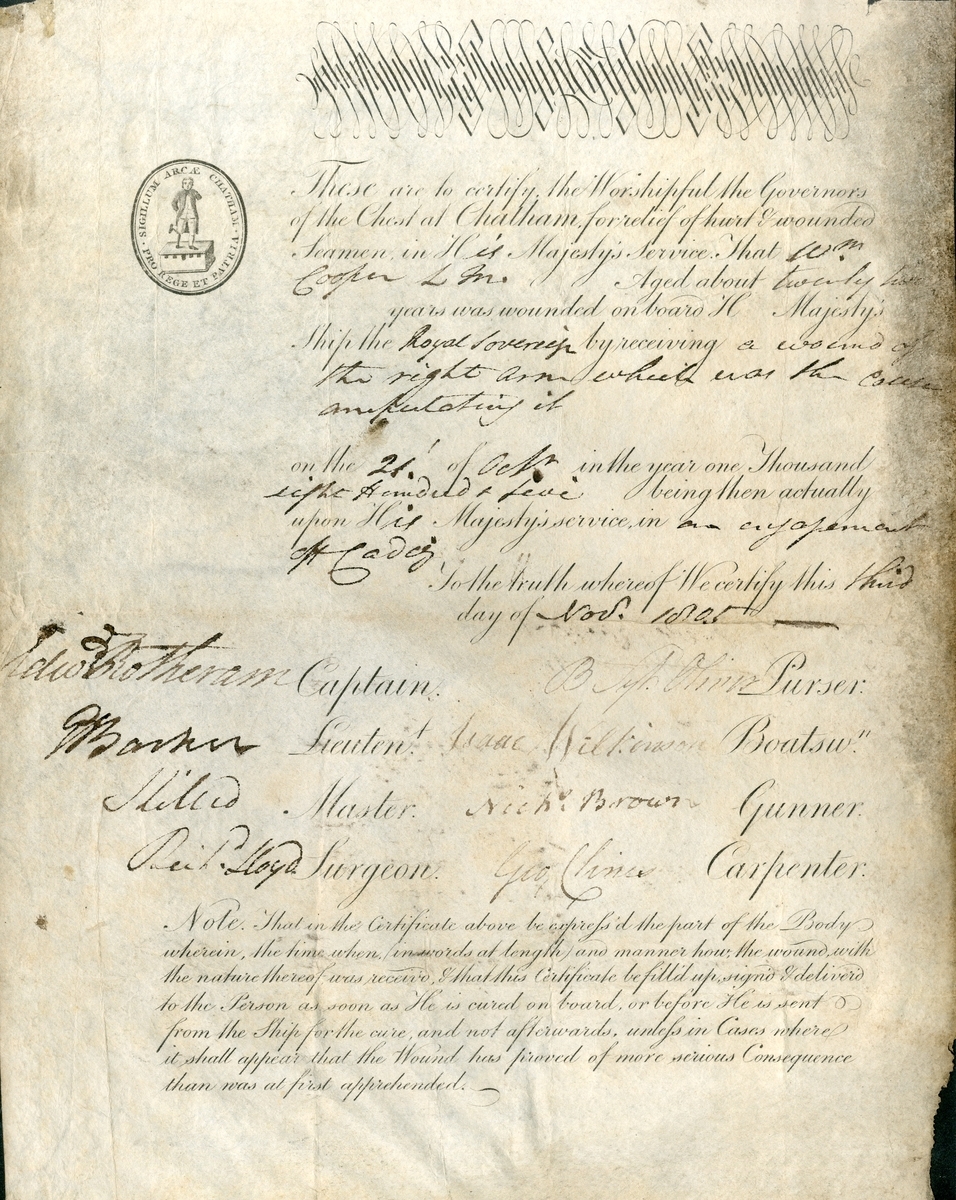 SIGILLUM ARCÆ CHATHAM · PRO REGE ET PATRIA ·
These are to certify, the Worshipful the Governors
of the Chest at Chatham, for relief of hurt & wounded
Seamen, in His Majesty's Service. That Wm
Cooper L M. Aged about twenty two
years was wounded on board H Majesty's
Ship the Royal Sovereign by receiving a wound of
the right arm which was the cause
amputating it
on the 21st of Octr in the year one Thousand
eight Hundred & five being then actually
upon His Majesty's service, in an engagement
off Cadiz
To the truth whereof We certify this third
day of Novr. 1805
Edwd Rotheram Captain. Purser.
Barker Lieutent. Isaac Wilkinson Boatswn.
Killed Master. Nichs. Brown Gunner.
Richd. Lloyd Surgeon. Geo Clines Carpenter.
Note. That in the Certificate above be express'd the part of the Body
wherein, the time when, (in words at length) and manner how, the wound, with
the nature thereof was receivd, & that this Certificate be fill'd up, signd & deliverd
to the Person as soon as He is cured on board, or before He is sent
from the Ship for the cure, and not afterwards, unless in Cases where
it shall appear that the Wound has proved of more serious Consequence
than was at first apprehended.